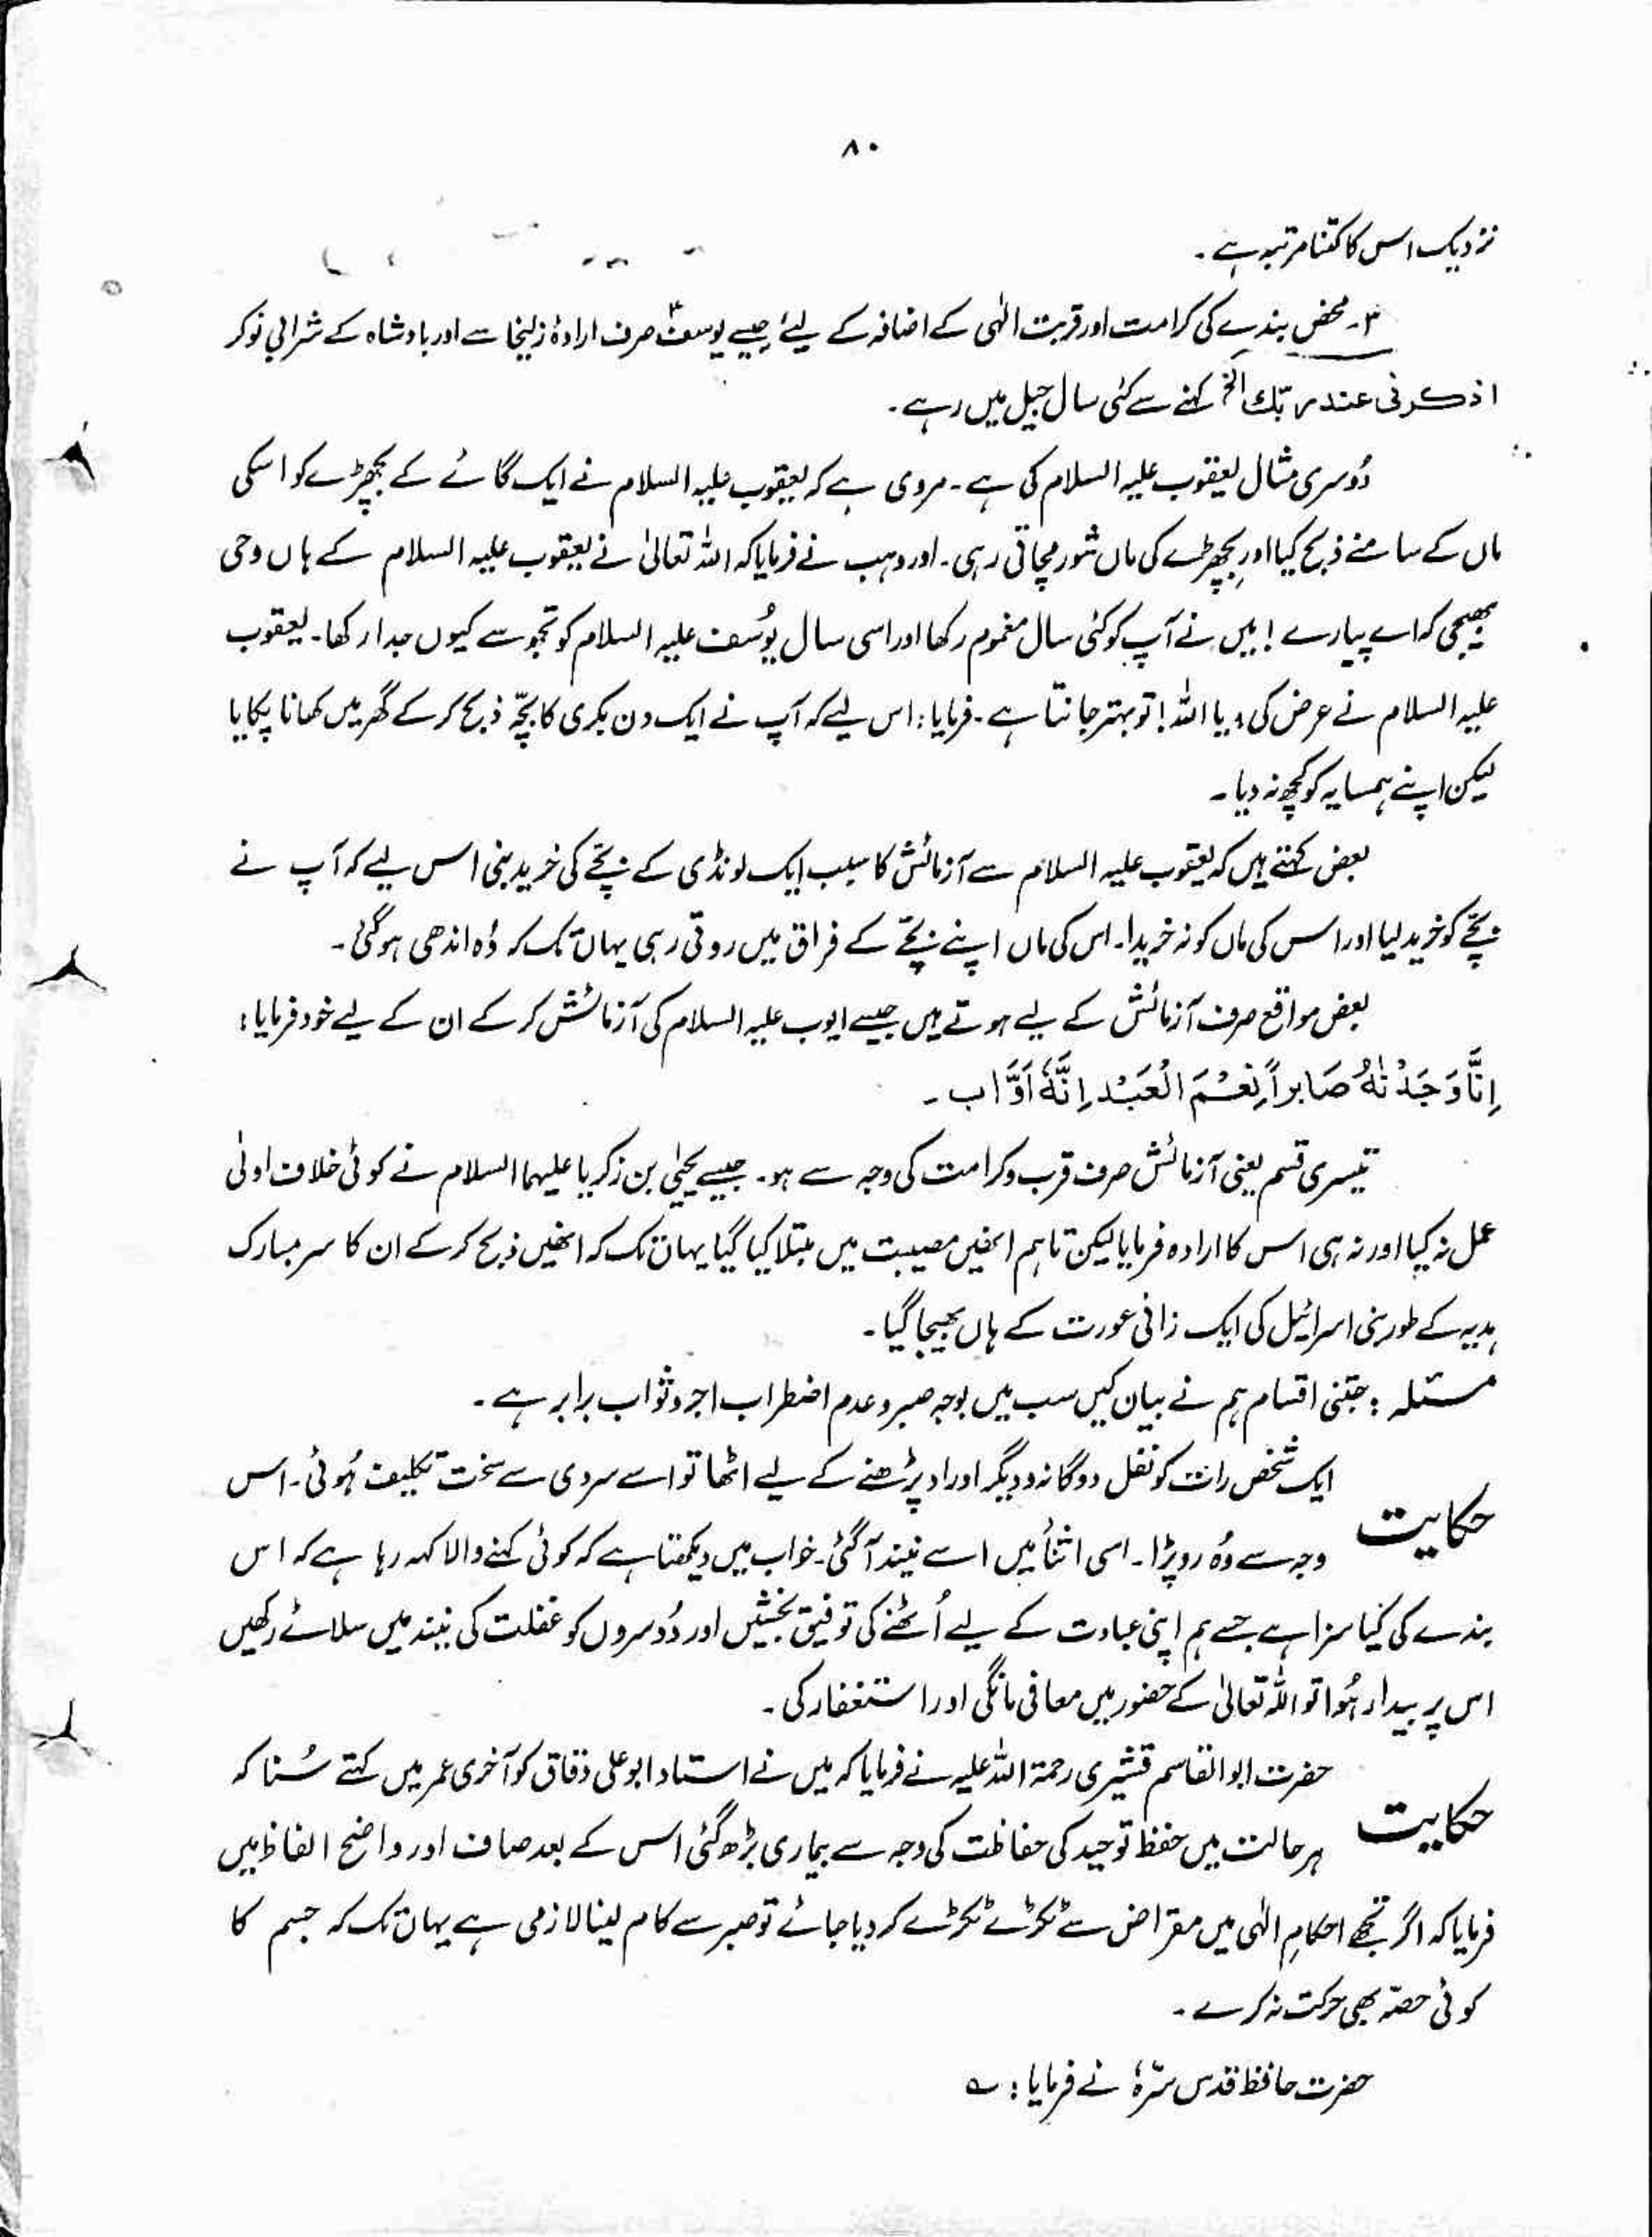 ۸۰
نزدیک اس کا کتنا مرتبہ ہے ۔
۳۔ محض بندے کی کرامت اور قربت الٰہی کے اضافہ کے لیے جیسے یوسفؑ صرف ارادۂ زلیخا سے اور بادشاہ کے شرابی نوکر
اذکرنی عند ربّک الخ کہنے سے کئی سال جیل میں رہے ۔
دُوسری مثال یعقوب علیہ السلام کی ہے ۔ مروی ہے کہ یعقوب علیہ السلام نے ایک گائے کے بچھڑے کو اسکی
ماں کے سامنے ذبح کیا اور بچھڑے کی ماں شور مچاتی رہی ۔ اور وہب نے فرمایا کہ اللہ تعالیٰ نے یعقوب علیہ السلام کے ہاں وحی
بھیجی کہ اے پیارے ! میں نے آپ کو کئی سال مغموم رکھا اور اسی سال یُوسف علیہ السلام کو تجھ سے کیوں جدا رکھا ۔ یعقوب
علیہ السلام نے عرض کی ، یا اللہ ! تو بہتر جانتا ہے ۔ فرمایا : اس لیے کہ آپ نے ایک دن بکری کا بچّہ ذبح کر کے گھر میں کھانا پکایا
لیکن اپنے ہمسایہ کو کچھ نہ دیا ۔
بعض کہتے ہیں کہ یعقوب علیہ السلام سے آزمائش کا سبب ایک لونڈی کے بچّے کی خرید بنی اس لیے کہ آپ نے
بچّے کو خرید لیا اور اس کی ماں کو نہ خریدا ۔ اس کی ماں اپنے بچّے کے فراق میں روتی رہی یہاں تک کہ وُہ اندھی ہوگئی ۔
بعض مواقع صرف آزمائش کے لیے ہوتے ہیں جیسے ایوب علیہ السلام کی آزمائش کر کے ان کے لیے خود فرمایا :
اِنَّا وَجَدْنٰهُ صَابِراً نِعْمَ الْعَبْدِ اِنَّهٗ اَوَّاب ۔
تیسری قسم یعنی آزمائش صرف قرب و کرامت کی وجہ سے ہو ۔ جیسے یحییٰ بن زکریا علیہما السلام نے کوئی خلاف اولیٰ
عمل نہ کیا اور نہ ہی اس کا ارادہ فرمایا لیکن تاہم انھیں مصیبت میں مبتلا کیا گیا یہاں تک کہ انھیں ذبح کر کے ان کا سر مبارک
ہدیہ کے طور بنی اسرائیل کی ایک زانی عورت کے ہاں بھیجا گیا ۔
مسئلہ : جتنی اقسام ہم نے بیان کیں سب میں بوجہ صبر و عدم اضطراب اجر و ثواب برابر ہے ۔
حکایت ایک شخص رات کو نفل دوگانہ و دیگر اوراد پڑھنے کے لیے اٹھا تو اسے سردی سے سخت تکلیف ہُوئی ۔ اس
وجہ سے وُہ رو پڑا ۔ اسی اثناُ میں اسے نیند آگئی ۔ خواب میں دیکھتا ہے کہ کوئی کہنے والا کہہ رہا ہے کہ اس
بندے کی کیا سزا ہے جسے ہم اپنی عبادت کے لیے اُٹھنے کی توفیق بخشیں اور دُوسروں کو غفلت کی نیند میں سلائے رکھیں
اس پر بیدار ہُوا تو اللہ تعالیٰ کے حضور میں معافی مانگی اور استغفار کی ۔
حکایت حضرت ابو القاسم قشیری رحمۃ اللہ علیہ نے فرمایا کہ میں نے استاد ابو علی دقاق کو آخری عمر میں کہتے سُنا کہ
ہر حالت میں حفظ توحید کی حفاظت کی وجہ سے بیماری بڑھ گئی اس کے بعد صاف اور واضح الفاظ میں
فرمایا کہ اگر تجھے احکامِ الٰہی میں مقراض سے ٹکڑے ٹکڑے کر دیا جائے تو صبر سے کام لینا لازمی ہے یہاں تک کہ جسم کا
کوئی حصّہ بھی حرکت نہ کرے ۔
حضرت حافظ قدس سرّہٗ نے فرمایا : ؎